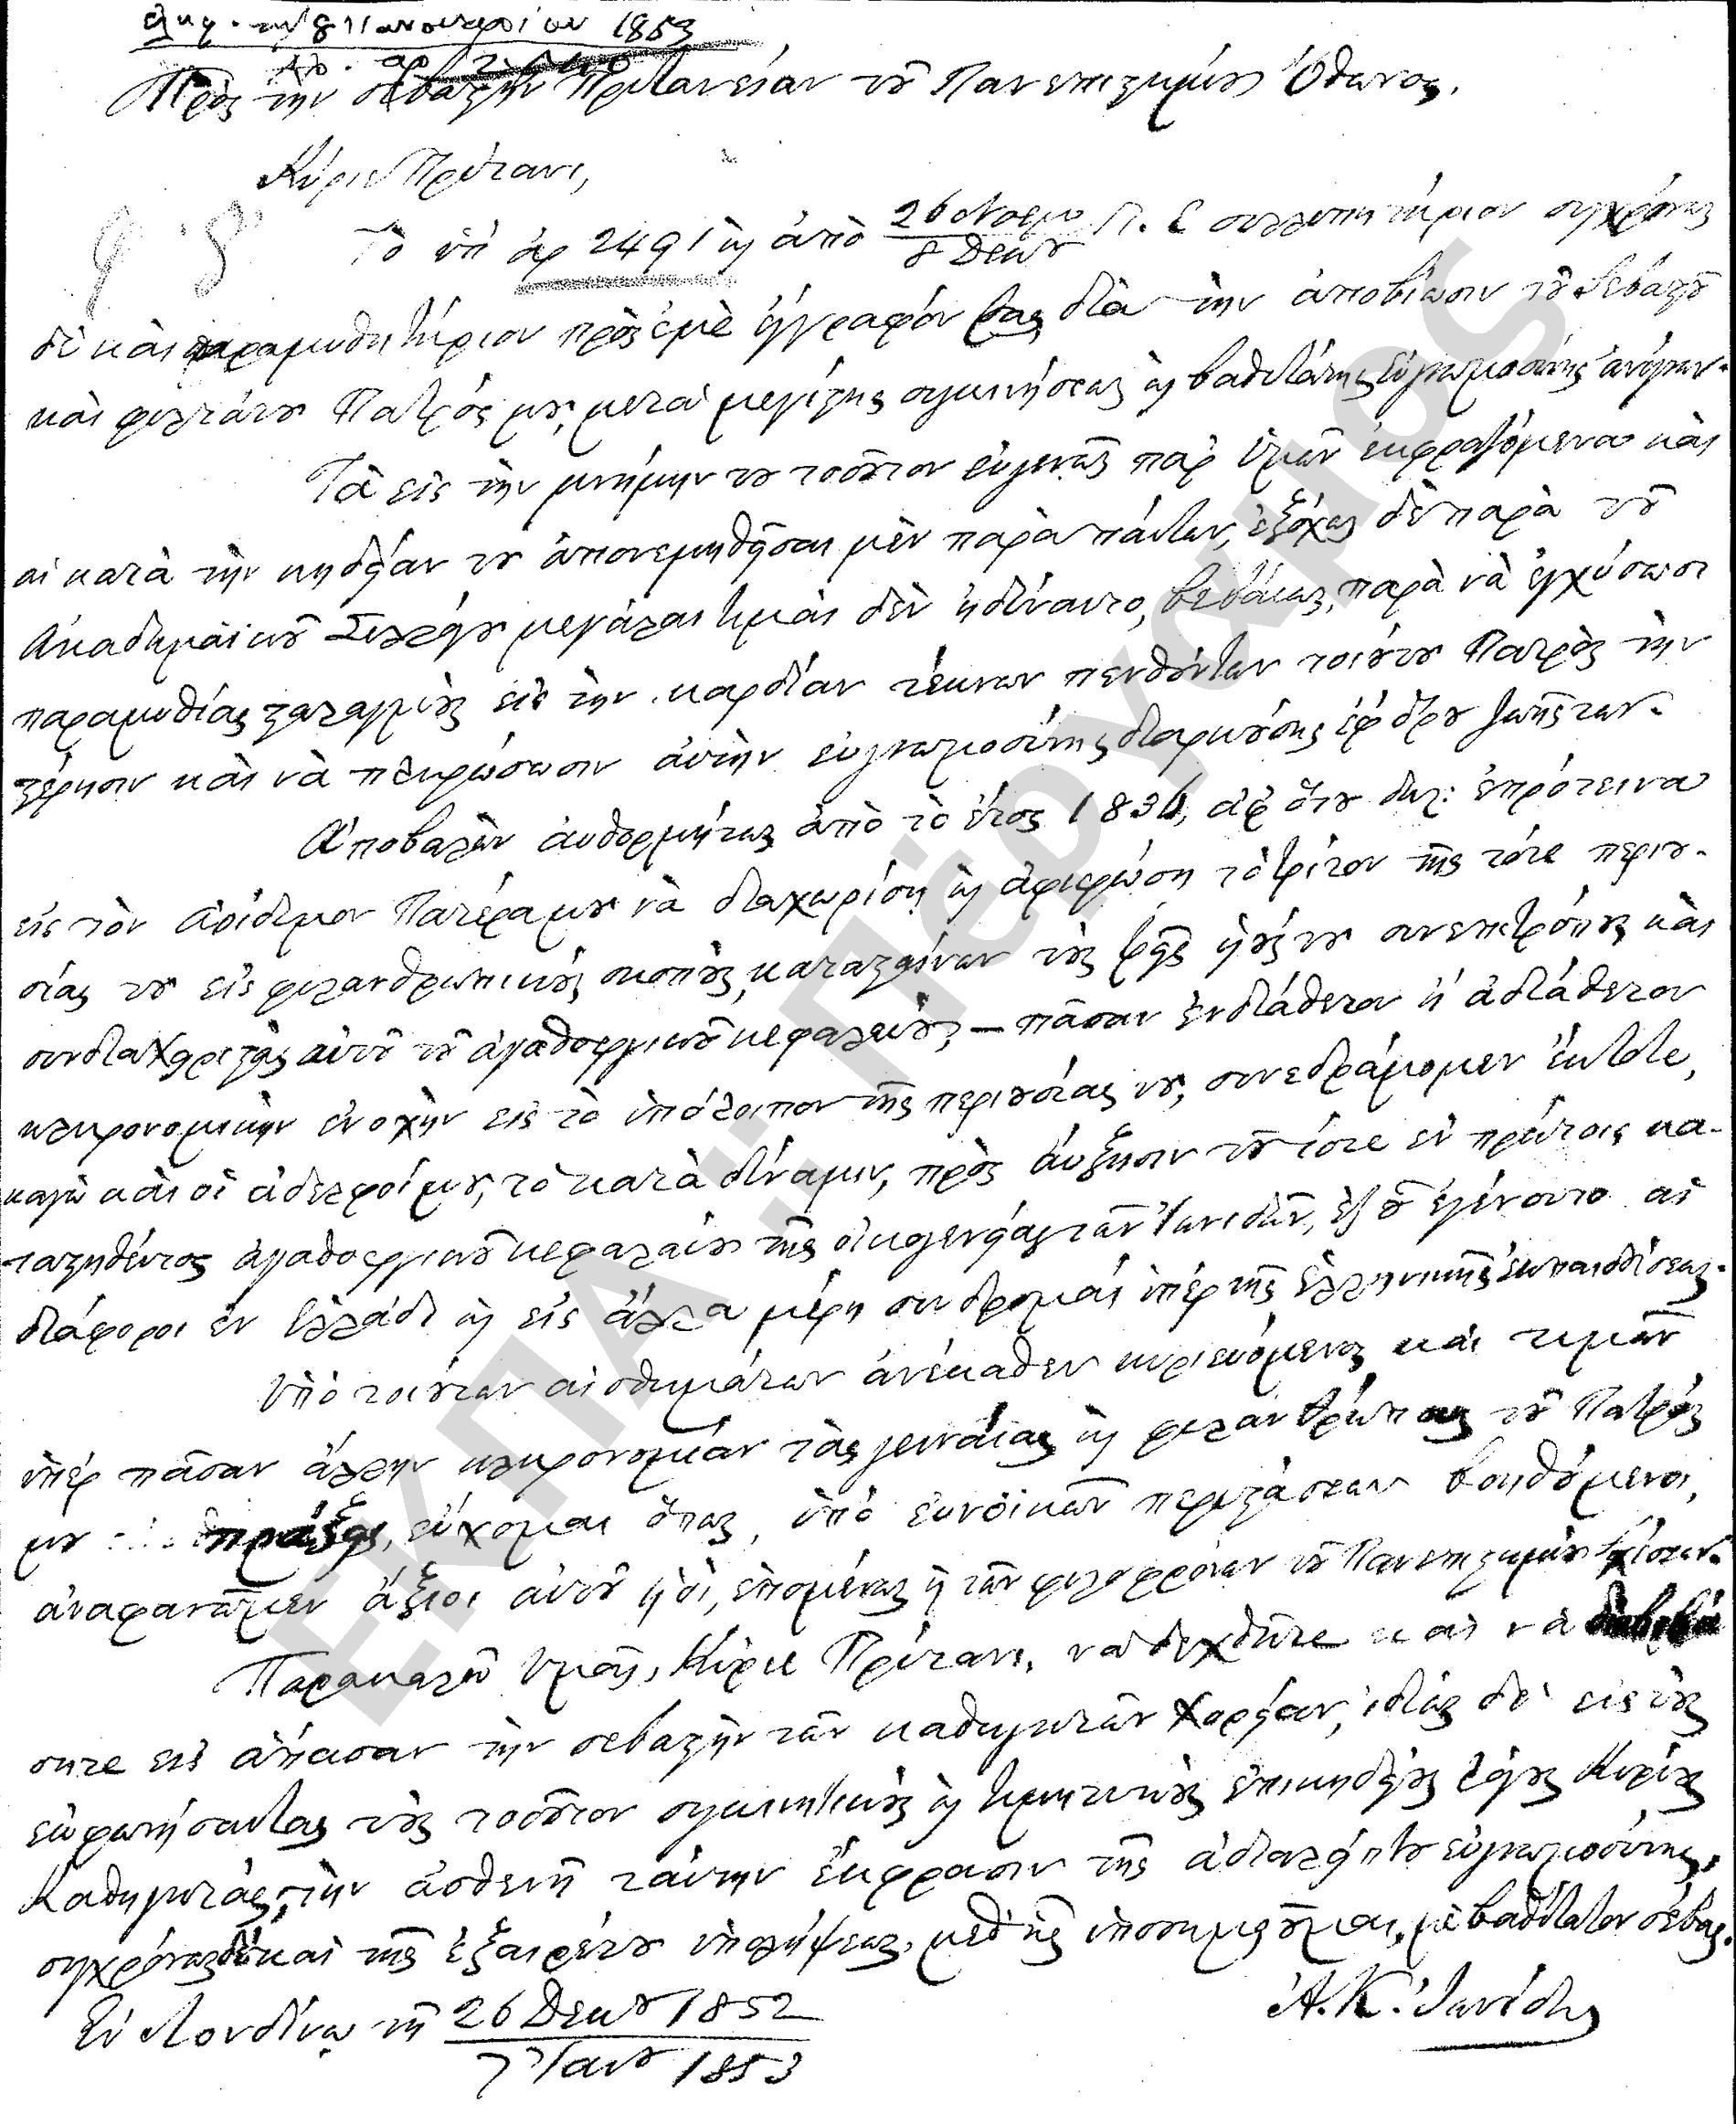 ἐλήφ. τῇ 8 Ἰανουαρίου 1853
Πρὸς τὴν σεβαστὴν Πρυτανείαν τοῦ Πανεπιστημίου Ὄθωνος.
Κύριε Πρύτανι,
Τὸ ὑπ' ἀρ 2491 καὶ ἀπὸ 26 Νοεμ / 8 Δεκου Π. Ε συλλυπητήριον συγχρόνως
δὲ καὶ παραμυθητήριον πρὸς ἐμὲ ἔγγραφόν σας διὰ τὴν ἀποβίωσιν τοῦ σεβαστοῦ
καὶ φιλτάτου Πατρός μου, μετὰ μεγίστης συγκινήσεως καὶ βαθυτάτης εὐγνωμοσύνης ἀνέγνων.
Τὰ εἰς τὴν μνήμην του τοσοῦτον εὐγενῶς παρ' ὑμῶν ἐκφραζόμενα καὶ
αἱ κατὰ τὴν κηδείαν του ἀπονεμηθεῖσαι μὲν παρὰ πάντων, ἐξόχως δὲ παρὰ τοῦ
Ἀκαδημαϊκοῦ Συλλόγου μεγάλαι τιμαὶ δὲν ἠδύναντο, βεβαίως, παρὰ νὰ ἐγχύσωσι
παραμυθίας σταλαγμοὺς εἰς τὴν καρδίαν τέκνων πενθούντων τοιούτου Πατρὸς τὴν
στέρησιν καὶ νὰ πληρώσωσιν αὐτὴν εὐγνωμοσύνης διαρκούσης ἐφ' ὅρου ζωῆς των.
Ἀποβαλὼν αὐθορμήτως ἀπὸ τὸ ἔτος 1836, ἀφ' ὅτου δηλ: ἐπρότεινα
εἰς τὸν ἀοίδιμον Πατέρα μου νὰ διαχωρίσῃ καὶ ἀφιερώσῃ τὸ τρίτον τῆς τότε περιου-
σίας του εἰς φιλανθρωπικοὺς σκοποὺς, κατασταίνων τοὺς τρεῖς υἱούς του συνεπιτρόπους καὶ
συνδιαχειριστὰς αὐτοῦ τοῦ ἀγαθοεργικοῦ κεφαλαίου, — πᾶσαν ἐνδιάθετον ἢ ἀδιάθετον
κληρονομικὴν ἐνοχὴν εἰς τὸ ὑπόλοιπον τῆς περιουσίας του, συνεδράμομεν ἔκτοτε,
κἀγὼ καὶ οἱ ἀδελφοί μου, τὸ κατὰ δύναμιν, πρὸς αὔξησιν τοῦ τότε ἐν πρώτοις κα-
ταστηθέντος ἀγαθοεργικοῦ κεφαλαίου τῆς οἰκογενείας τῶν Ἰωνιδῶν, ἐξ οὗ ἐγένοντο αἱ
διάφοροι ἐν Ἑλλάδι καὶ εἰς ἄλλα μέρη συνδρομαὶ ὑπὲρ τῆς ἑλληνικῆς ἐκπαιδεύσεως.
Ὑπὸ τοιούτων αἰσθημάτων ἀνέκαθεν κυριευόμενος καὶ τιμῶν
ὑπὲρ πᾶσαν ἄλλην κληρονομίαν τὰς γενναίας καὶ φιλανθρώπους τοῦ Πατρός
μου πράξεις, εὔχομαι ὅπως, ὑπὸ εὐνοϊκῶν περιστάσεων βοηθούμενοι,
ἀναφανῶμεν ἄξιοι αὐτοῦ υἱοί, ἑπομένως καὶ τῶν φιλοφρόνων τοῦ Πανεπιστημίου σχέσεων.
Παρακαλῶ Ὑμᾶς, Κύριε Πρύτανι, νὰ δεχθῆτε καὶ νὰ διαβιβά
σητε εἰς ἅπασαν τὴν σεβαστὴν τῶν καθηγητῶν χορείαν, ἰδίως δὲ εἰς τοὺς
ἐκφωνήσαντας τοὺς τοσοῦτον συγκινητικοὺς καὶ τιμητικοὺς ἐπικηδείους λόγους Κυρίους
Καθηγητάς, τὴν ἀσθενῆ ταύτην ἔκφρασιν τῆς ἀδιαλείπτου εὐγνωμοσύνης,
συγχρόνως δὲ καὶ τῆς ἐξαιρέτου ὑπολήψεως, μεθ' ἧς ὑποσημειοῦμαι, μὲ βαθύτατον σέβας.
Ἐν Λονδίνῳ τῇ 26 Δεκου 1852 / 7 Ἰανου 1853
Α. Κ. Ἰωνίδης
ΕΚΠΑ: Πέργαμος